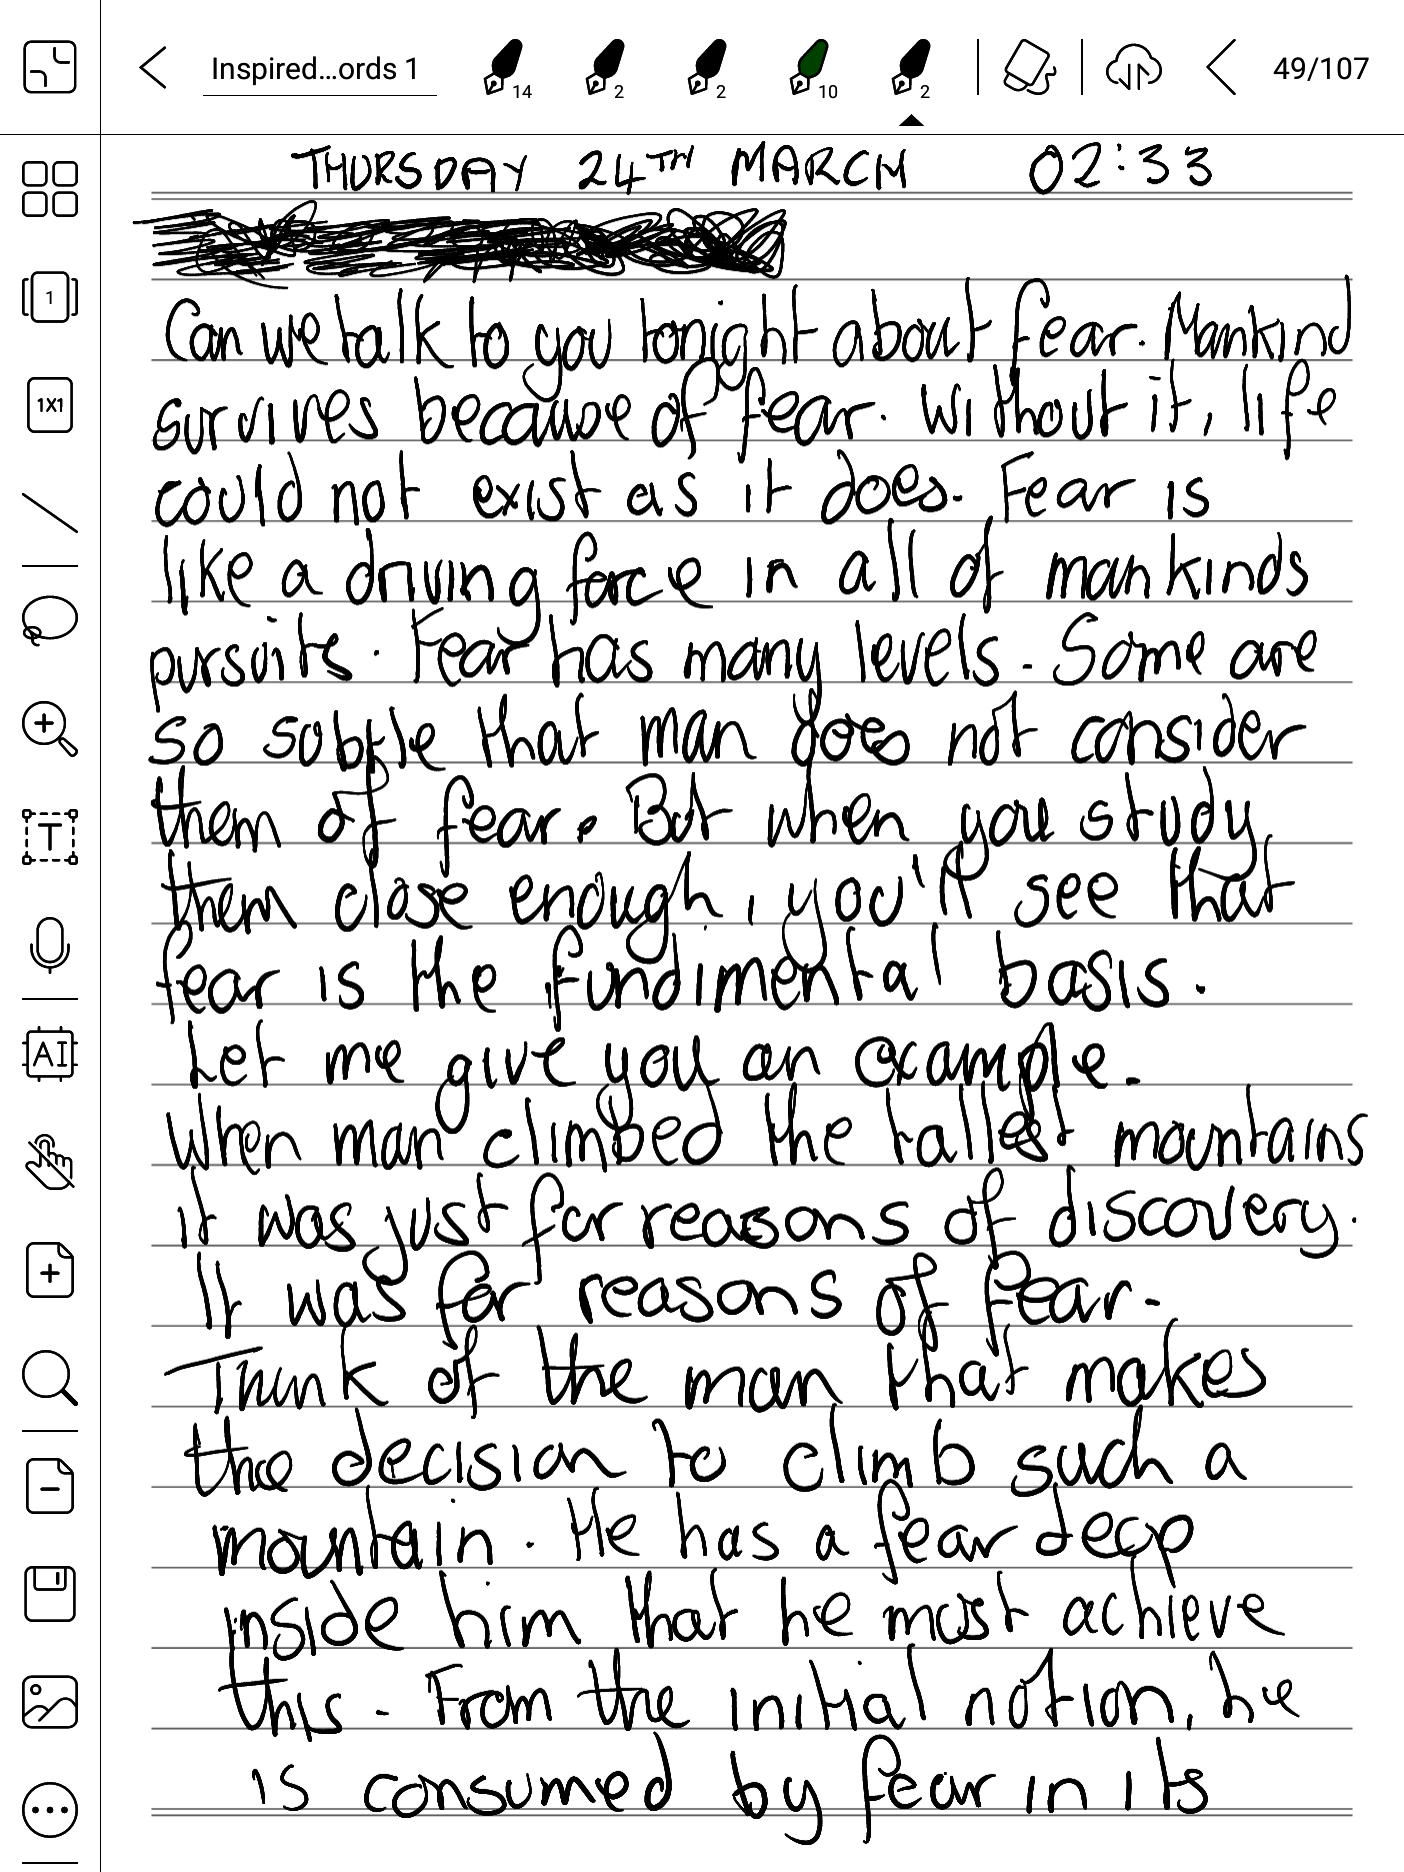 Inspired...ords 1
14
2
2
10
2
49/107
1
1X1
T
AI
THURSDAY 24TH MARCH 02:33
Can we talk to you tonight about fear. Mankind
survives because of fear. Without it, life
could not exist as it does. Fear is
like a driving force in all of mankinds
pursuits. Fear has many levels. Some are
so subtle that man does not consider
them of fear. But when you study
them close enough, you'll see that
fear is the fundimental basis.
Let me give you an example.
When man climbed the tallest mountains
it was just for reasons of discovery.
It was for reasons of fear.
Think of the man that makes
the decision to climb such a
mountain. He has a fear deep
inside him that he must achieve
this. From the initial notion, he
is consumed by fear in its